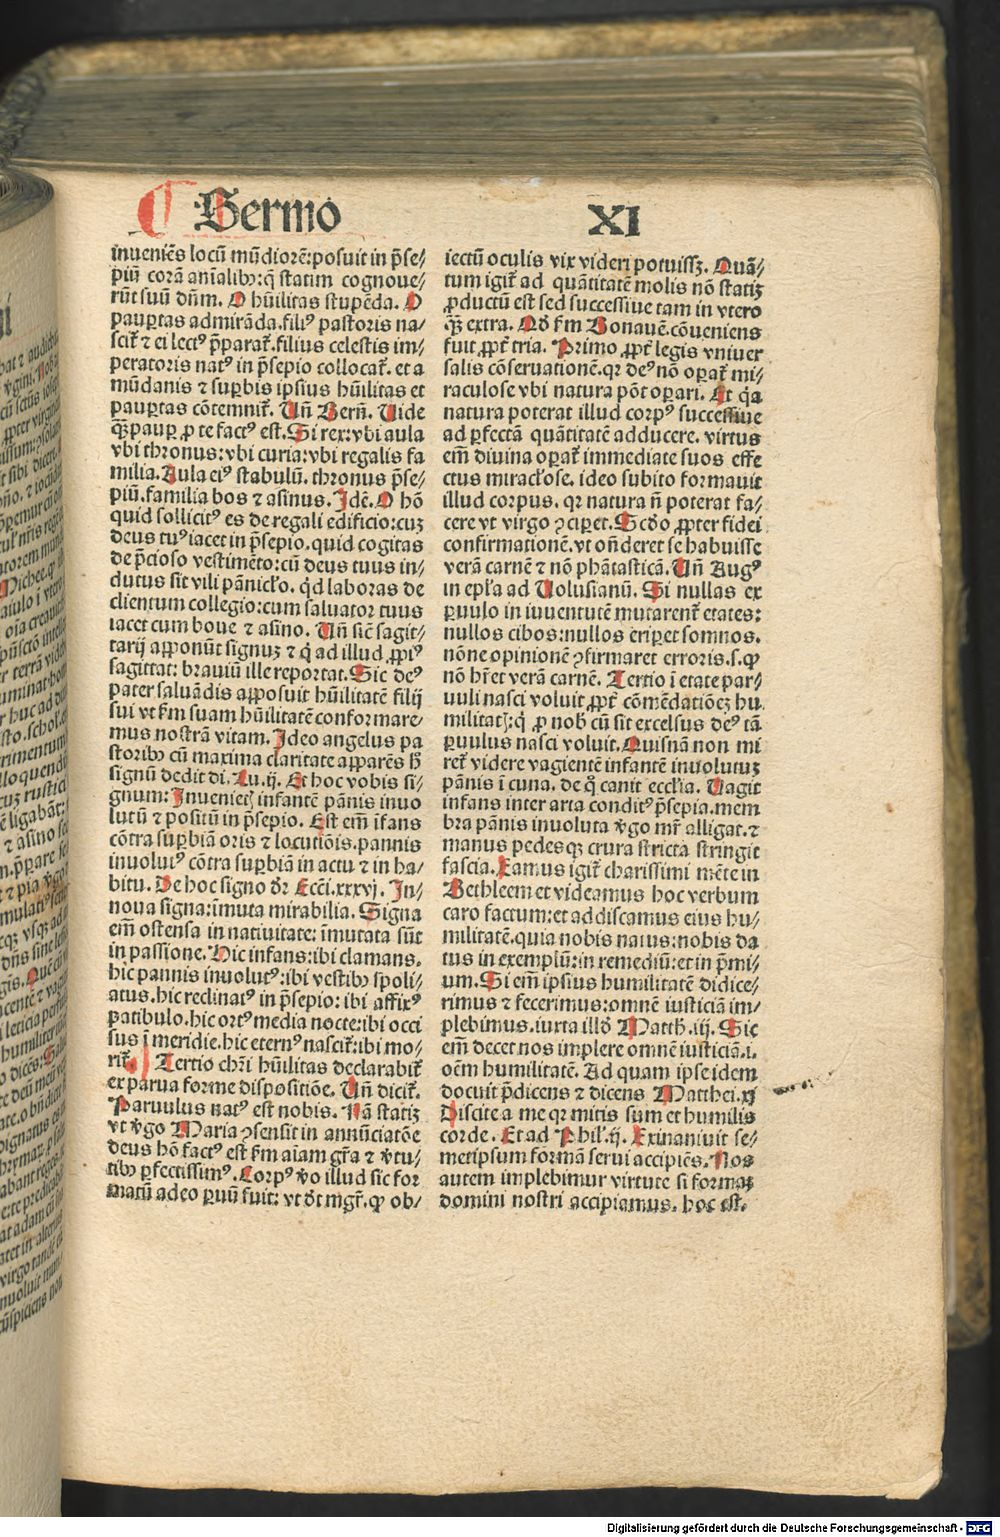 Sermo XI
inueniēs locū mūdiorē:posuit in p̄se⸗
piū corā aīalibꝫ:q̄ statim cognoue⸗
rūt suū dn̄m. O hūilitas stupēda. O
pauꝑtas admirāda.filiꝰ pastoris na⸗
scit᷑ ⁊ ei lectꝰ p̄parat᷑.filius celestis im⸗
peratoris natꝰ in p̄sepio collocat᷑. et a
mūdanis ⁊ suꝑbis ipsius hūilitas et
pauꝑtas cōtemnit᷑. Un̄ Bern̄. Uide
qꝫ̄ pauꝑ ꝓ te factꝰ est. Si rex:vbi aula
vbi thronus:vbi curia:vbi regalis fa
milia. Aula eiꝰ stabulū. thronus p̄se⸗
piū.familia bos ⁊ asinus. Jdē. O hō
quid sollicitꝰ es de regali edificio:cuꝫ
deus tuꝰ iacet in p̄sepio.quid cogitas
de p̄cioso vestimēto:cū deus tuus in⸗
dutus sit vili pānicl̓o. q̇d laboras de
clientum collegio:cum saluator tuus
iacet cum boue ⁊ asino. Un̄ sic̄ sagit⸗
tarij apponūt signuꝫ ⁊ q̇ ad illud ꝓpiꝰ
sagittat: brauiū ille reportat. Sic deꝰ
pater saluādis apposuit hūilitatē filij
sui vt ẜm suam hūilitatē conformare⸗
mus nostrā vitam. Jdeo angelus pa
storibꝫ cū maxima claritate apparēs h̄
signū dedit di. Lu.ij. Et hoc vobis si⸗
gnum: Jnuenietꝭ infantē pānis inuo
lutū ⁊ positū in p̄sepio. Est em̄ īfans
cōtra suꝑbiā oris ⁊ locutiōis.pannis
inuolutꝰ cōtra suꝑbiā in actu ⁊ in ha⸗
bitu. De hoc signo dr̄ Ecc̄i.xxxvj. Jn⸗
noua signa:īmuta mirabilia. Signa
em̄ ostensa in natiuitate: īmutata sūt
in passione. Hic infans: ibi clamans.
hic pannis inuolutꝰ:ibi vestibꝫ spoli⸗
atus.hic reclinatꝰ in p̄sepio: ibi affixꝰ
patibulo.hic ortꝰ media nocte:ibi occi
sus ī meridie.hic eternꝰ nascit᷑:ibi mo⸗
rit᷑. Tertio chr̄i hūilitas declarabit᷑
ex parua forme dispositiōe. Un̄ dicit᷑.
Paruulus natꝰ est nobis. Nā statiꝫ
vt v̓go Maria ꝯsensit in annūciatōe
deus hō factꝰ est ẜm aīam gr̄a ⁊ v̓tu⸗
tibꝫ ꝑfectissimꝰ. Corpꝰ v̓o illud sic for
matū adeo ꝑuū fuit: vt dt̄ mgr̄. ꝙ ob⸗
iectū oculis vix videri potuissꝫ. Quā⸗
tum igit᷑ ad quātitatē molis nō statiꝫ
ꝓductū est sed successiue tam in vtero
qꝫ̄ extra. Qd̓ ẜm Bonauē.cōueniens
fuit.ꝓpt᷑ tria. Primo ꝓpt᷑ legis vniuer
salis cōseruationē.qꝛ deꝰ nō oꝑat᷑ mi⸗
raculose vbi natura pōt oꝑari. Et q̇a
natura poterat illud corpꝰ successiue
ad ꝑfectā quātitatē adducere. virtus
em̄ diuina oꝑat᷑ immediate suos effe
ctus miracl̓ose. ideo subito formauit
illud corpus. qꝛ natura n̄ poterat fa⸗
cere vt virgo ꝯciꝑet. Scd̓o ꝓpter fidei
confirmationē.vt on̄deret se habuisse
verā carnē ⁊ nō phātasticā. Un̄ Augꝰ
in epl̓a ad Uolusianū. Si nullas ex
ꝑuulo in iuuentutē mutarent᷑ etates:
nullos cibos:nullos c̄riꝑet somnos.
nōne opinionē ꝯfirmaret erroris.s.ꝙ
nō hr̄et verā carnē. Tertio ī etate par⸗
uuli nasci voluit ꝓpt᷑ cōmēdatiōeꝫ hu
militatꝭ:q̇ ꝓ nob̓ cū sit excelsus deꝰ tā
ꝑuulus nasci voluit. Quisnā non mi
ret᷑ videre vagientē infantē inuolutuꝫ
pānis ī cuna. de q̊ canit eccl̓ia. Uagit
infans inter arta conditꝰ p̄sepia.mem
bra pānis inuoluta v̓go mr̄ alligat.⁊
manus pedesqꝫ crura stricta stringit
fascia. Eamus igit᷑ charissimi mēte in
Bethleem et videamus hoc verbum
caro factum:et addiscamus eius hu⸗
militatē.quia nobis natus:nobis da
tus in exemplū:in remediū:et in p̄mi⸗
um. Si em̄ ipsius humilitatē didice⸗
rimus ⁊ fecerimus:omnē iusticiā im⸗
plebimus.iuxta illd̓ Matth̓.iij. Sic
em̄ decet nos implere omnē iusticiā.i.
oēm humilitatē. Ad quam ipse idem
docuit p̄dicens ⁊ dicens Matthei.xj
Discite a me qꝛ mitis sum et humilis
corde. Et ad Phil̓.ij. Exinaniuit se⸗
metipsum formā serui accipiēs. Nos
autem implebimur virtute si formaꝫ
domini nostri accipiamus. hoc est.
Digitalisierung gefördert durch die Deutsche Forschungsgemeinschaft - DFG